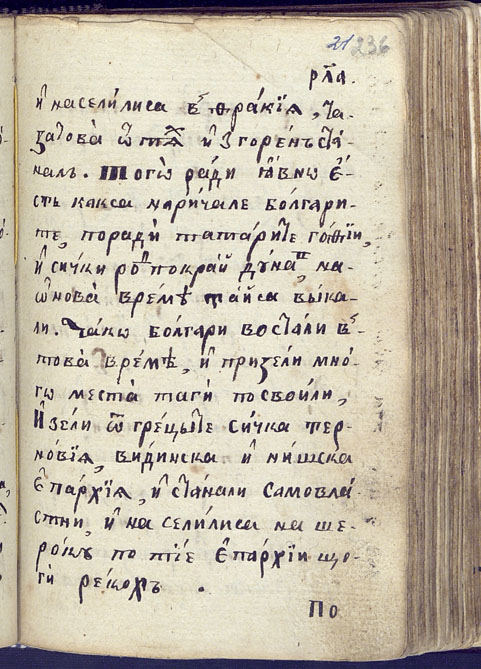 21 236
рл҃а.
и҆ насели́лиса въ ѳра́кїѧ, та-
затова̀ ѿ тѧⷯ и҆ згоренъ ста́-
налъ. Тогѡ ра́ди ꙗ҆́внѡ є҆́-
сть какса нари́чале бо́лгари-
те, порадѝ татари́те го́тѳїи,
и҆ си́чки роⷣ покра́й дꙋ́наⷡ, на-
ѡ҆нова̀ вре́мѣ та́йса выка-
ли. Та́кѡ болгари воста́ли въ
това̀ вре́мѣ, и҆ призе́ли мно́-
гѡ места̀ таги посвои́ли,
И҆ зе́ли ѿ гре́цыте си́чка тер-
но́вїѧ, ви́динска и҆ ни́шска
є҆па́рхїѧ, и҆ ста́нали самовла́-
стни, и҆ на сели́лиса на ше-
ро́къ по тїе є҆па́рхїи що-
гѝ реко́хъ.
По